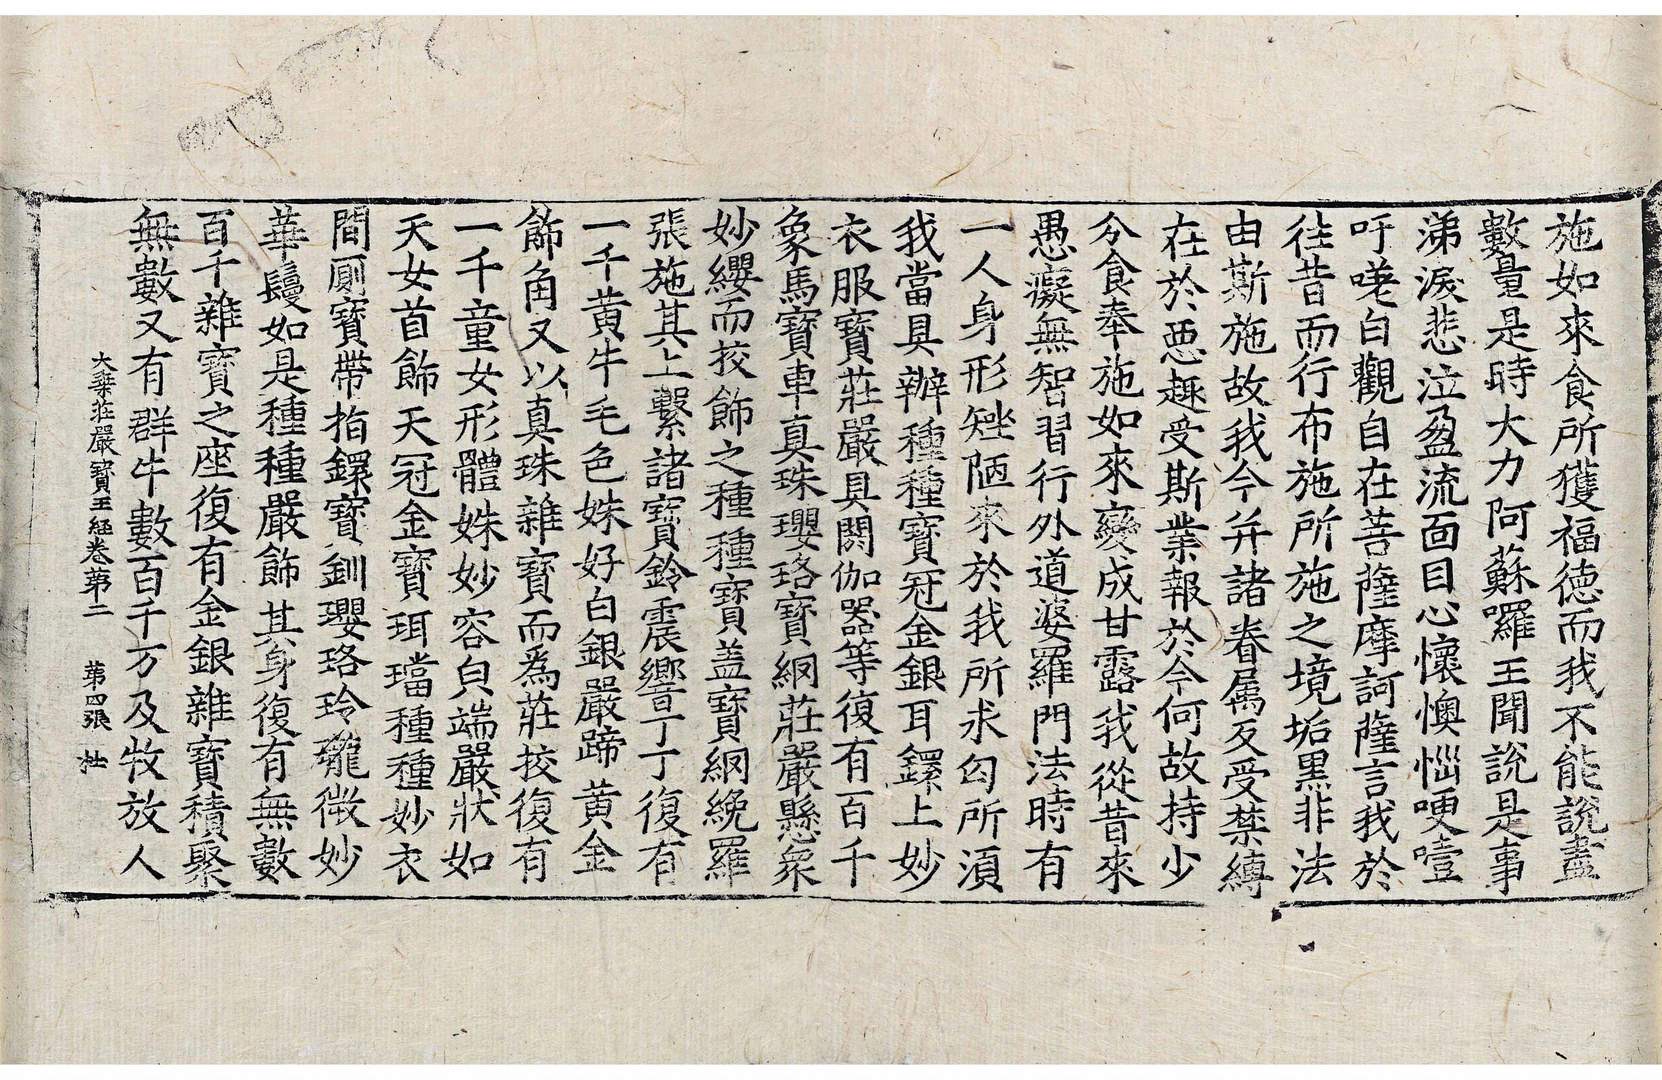 施如來食所獲福德而我不能說盡
數量是時大力阿蘇囉王聞說是事
涕淚悲泣盈流面目心懷懊惱哽噎
吁嗟白觀自在菩薩摩訶薩言我於
往昔而行布施所施之境垢黑非法
由斯施故我今并諸眷属反受禁縛
在於惡趣受斯業報於今何故持少
分食奉施如來變成甘露我從昔來
愚癡無智習行外道婆羅門法時有
一人身形矬陋來於我所求匃所須
我當具辦種種寶冠金銀耳鐶上妙
衣服寶莊嚴具閼伽器等復有百千
象馬寶車真珠瓔珞寶網莊嚴懸衆
妙纓而挍飾之種種寶盖寶網綩羅
張施其上繫諸寶鈴震響丁丁復有
一千黄牛毛色姝好白銀嚴蹄黄金
飾角又以真珠雜寶而爲莊挍復有
一千童女形體姝妙容皃端嚴狀如
天女首飾天冠金寶珥璫種種妙衣
間厠寶帶指鐶寶釧瓔珞玲瓏微妙
華鬘如是種種嚴飾其身復有無數
百千雜寶之座復有金銀雜寶積聚
無數又有群牛數百千万及牧放人
大乘莊嚴寶王經卷第二 第四張